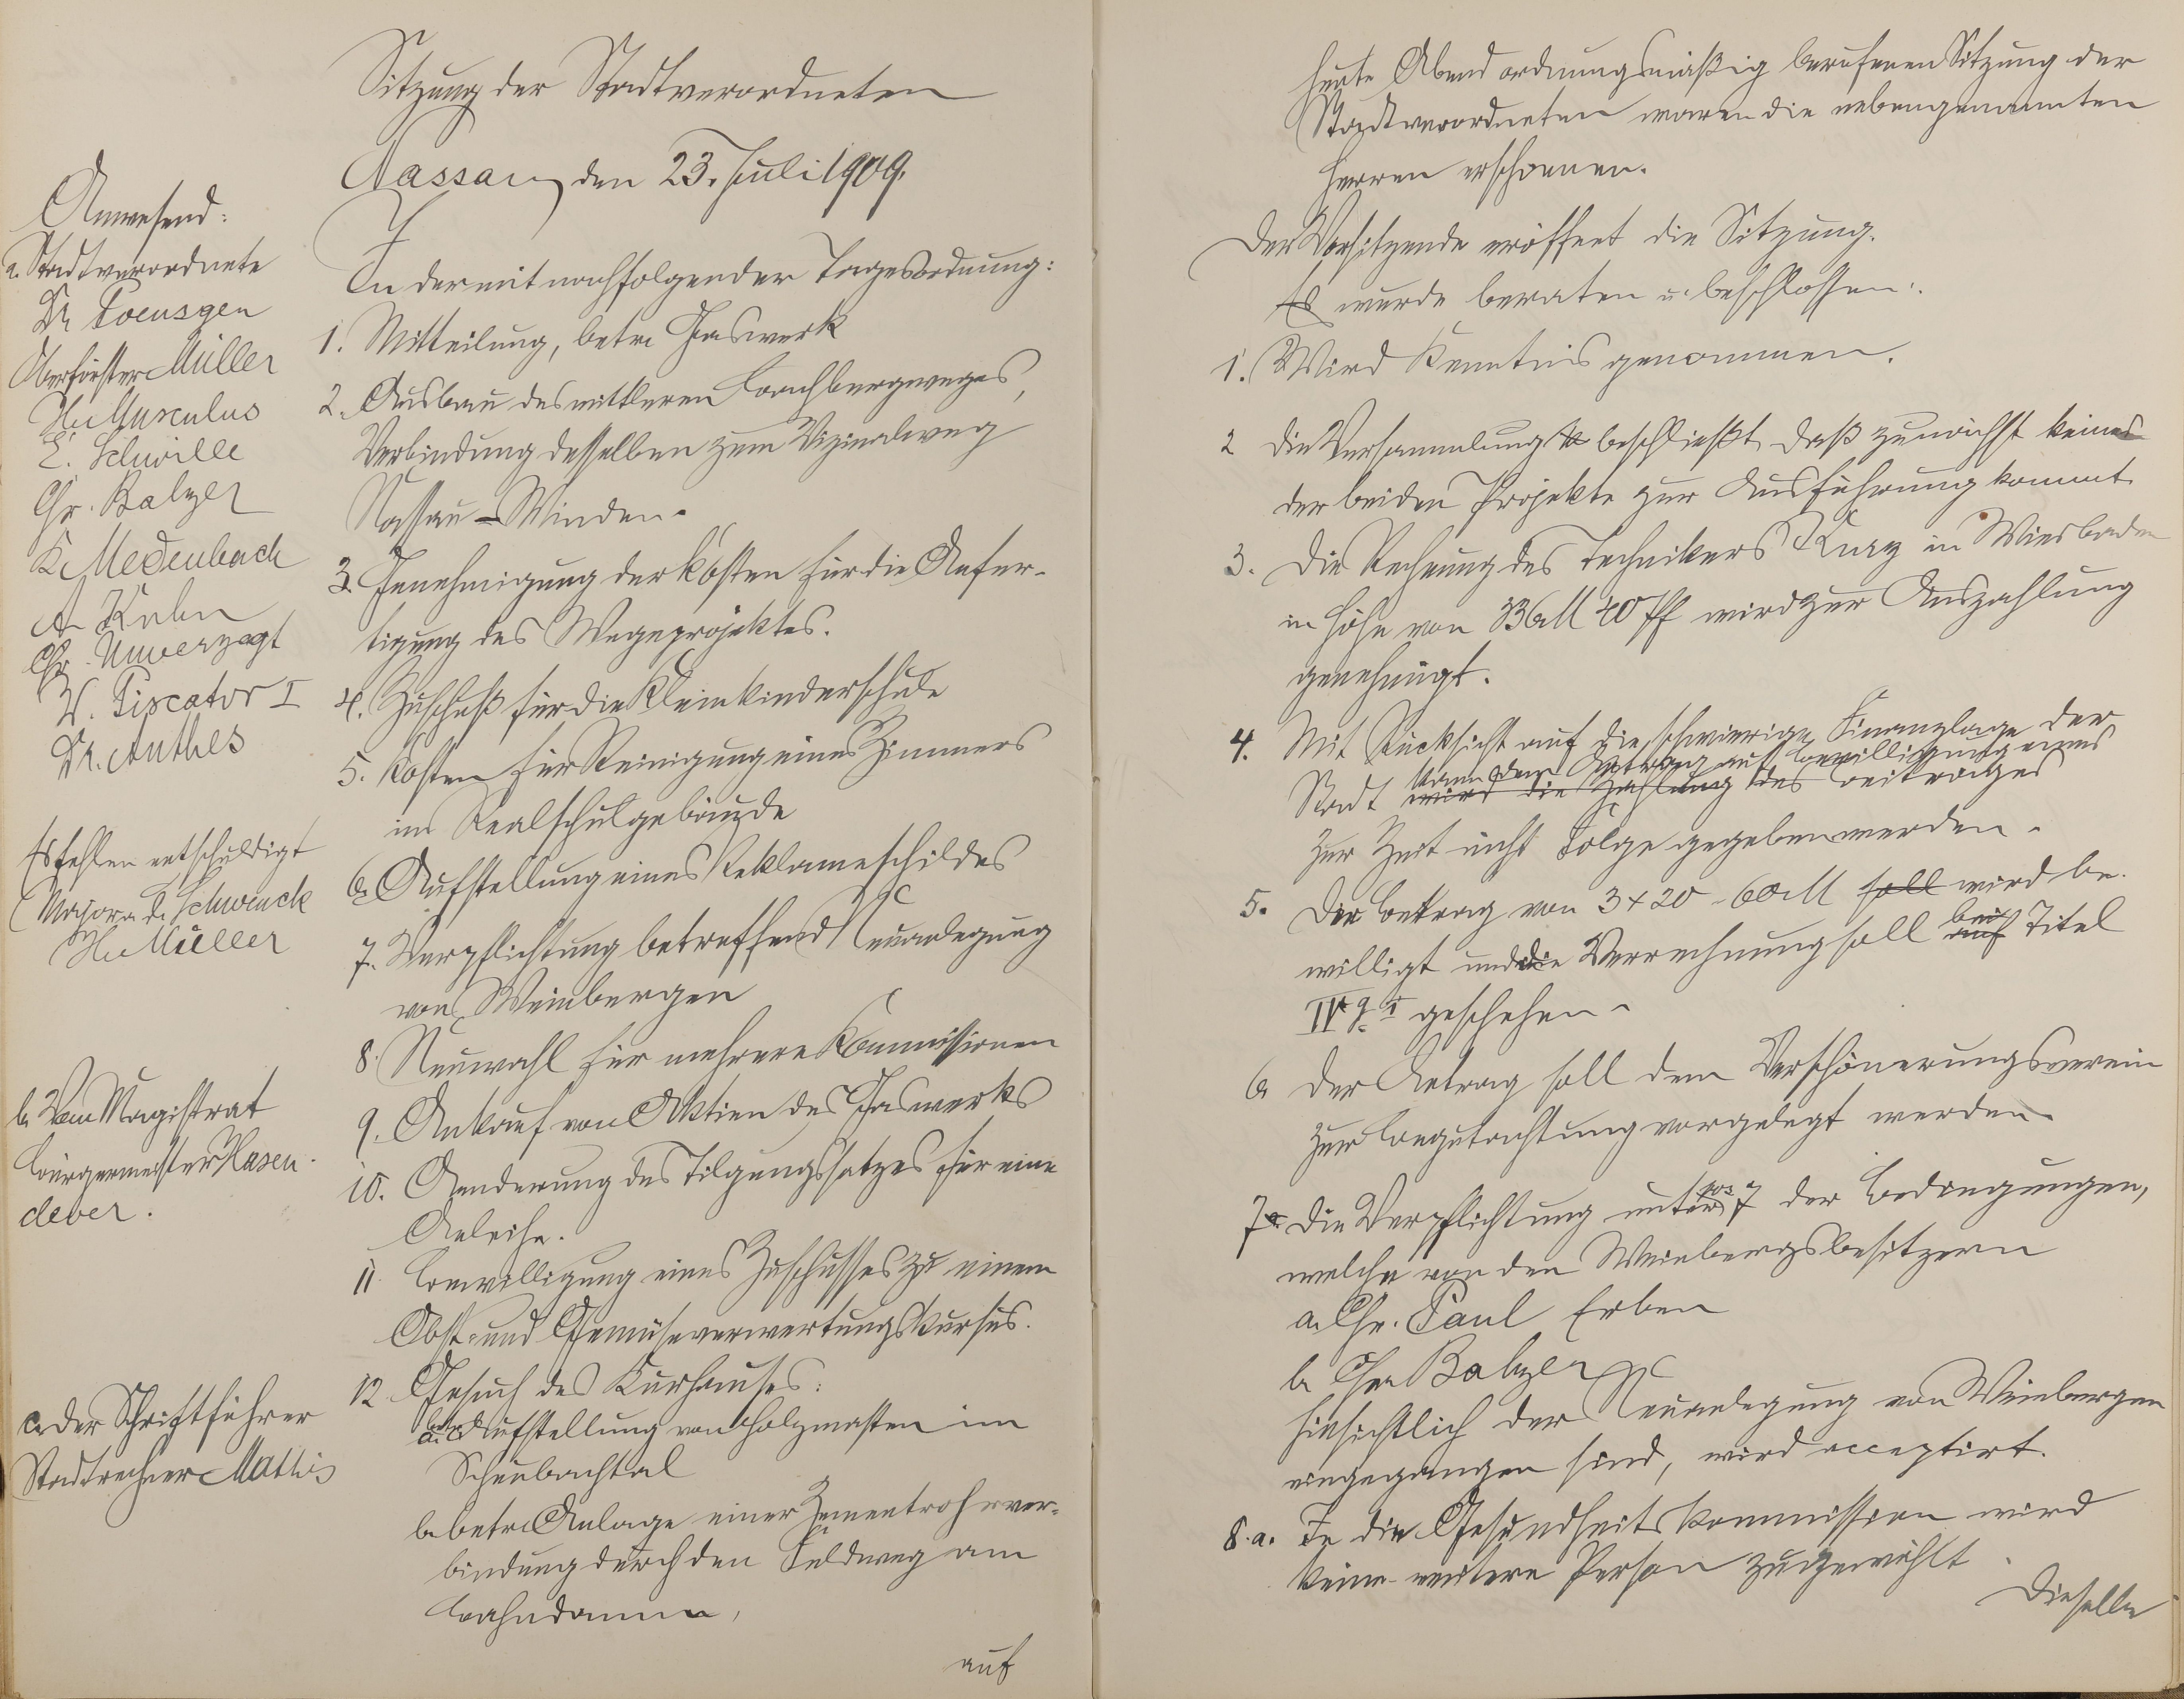 Sitzung der Stadtverordneten
Nassau, den 23. Juli 1909.
Anwesend:
a. Stadtverordnete
Dr Poensgen
Oberförster Müller
H. Musculus
E. Schwille
Chr. Balzer
K. Medenbach
A. Kuhn
Chr. Unverzagt
W. Piscator I
Dr. Anthes
Es fehlen entschuldigt
Major a. D. Schwenck
H. Müller
b. Vom Magistrat
Bürgermeister Hasen-
clever.
c. Der Schriftführer
Stadtrechner Mathis
In der mit nachfolgender Tagesordnung:
1. Mitteilung, betr. Gaswerk
2. Ausbau des mittleren Bachbergweges,
Verbindung desselben zum Vizinalweg
Nassau-Winden.
3. Genehmigung der Kosten für die Anfer-
tigung des Wegeprojektes.
4. Zuschuß für die Kleinkinderschule
5. Kosten für Reinigung eines Zimmers
im Realschulgebäude
6. Aufstellung eines Reklameschildes
7. Verpflichtung betreffend Neuanlegung
von Weinbergen
8. Neuwahl für mehrere Kommissionen
9. Ankauf von Aktien des Gaswerks
10. Aenderung des Tilgungssatzes für eine
Anleihe.
11 Bewilligung eines Zuschusses zu einem
Obst- und Gemüseverwertungskursus.
12 Gesuch des Kurhauses:
a. betr. Aufstellung von Holzmasten im
Scheubachtal
b. betr. Anlage einer Zementrohrver-
bindung durch den Feldweg am
Bahndamm,
auf
heute Abend ordnungsmäßig berufenen Sitzung der
Stadtverordneten waren die nebengenannten
Herren erschienen.
Der Vorsitzende eröffnet die Sitzung.
Es wurde beraten u. beschlossen:
1. Wird Kenntnis genommen.
2 Die Versammlung beschließt, daß zunächst keines
der beiden Projekte zur Ausführung kommt
3. Die Rechnung des Technikers Kurz in Wiesbaden
in Höhe von 336 M 40 Pf wird zur Auszahlung
genehmigt.
4. Mit Rücksicht auf die schwierige Finanzlage der
kann dem Antrag auf Bewilligung eines
Stadt wird die Zahlung des Beitrages
zur Zeit nicht Folge gegeben werden.
5. Der Betrag von 3 x 20 = 60 M soll wird be-
willigt und die Verrechnung soll auf bei Titel
IV geschehen.
6 Der Antrag soll dem Verschönerungsverein
zur Begutachtung vorgelegt werden.
7. Die Verpflichtung unter pos 7 der Bedingungen,
welche von den Weinbergsbesitzern
a. Chr. Paul Erben
b. Chr. Balzer
hinsichtlich der Neuanlegung von Weinbergen
eingegangen sind, wird acceptirt.
8. a. In die Gesundheitskommission wird
keine weitere Person zugewählt.
Dieselbe